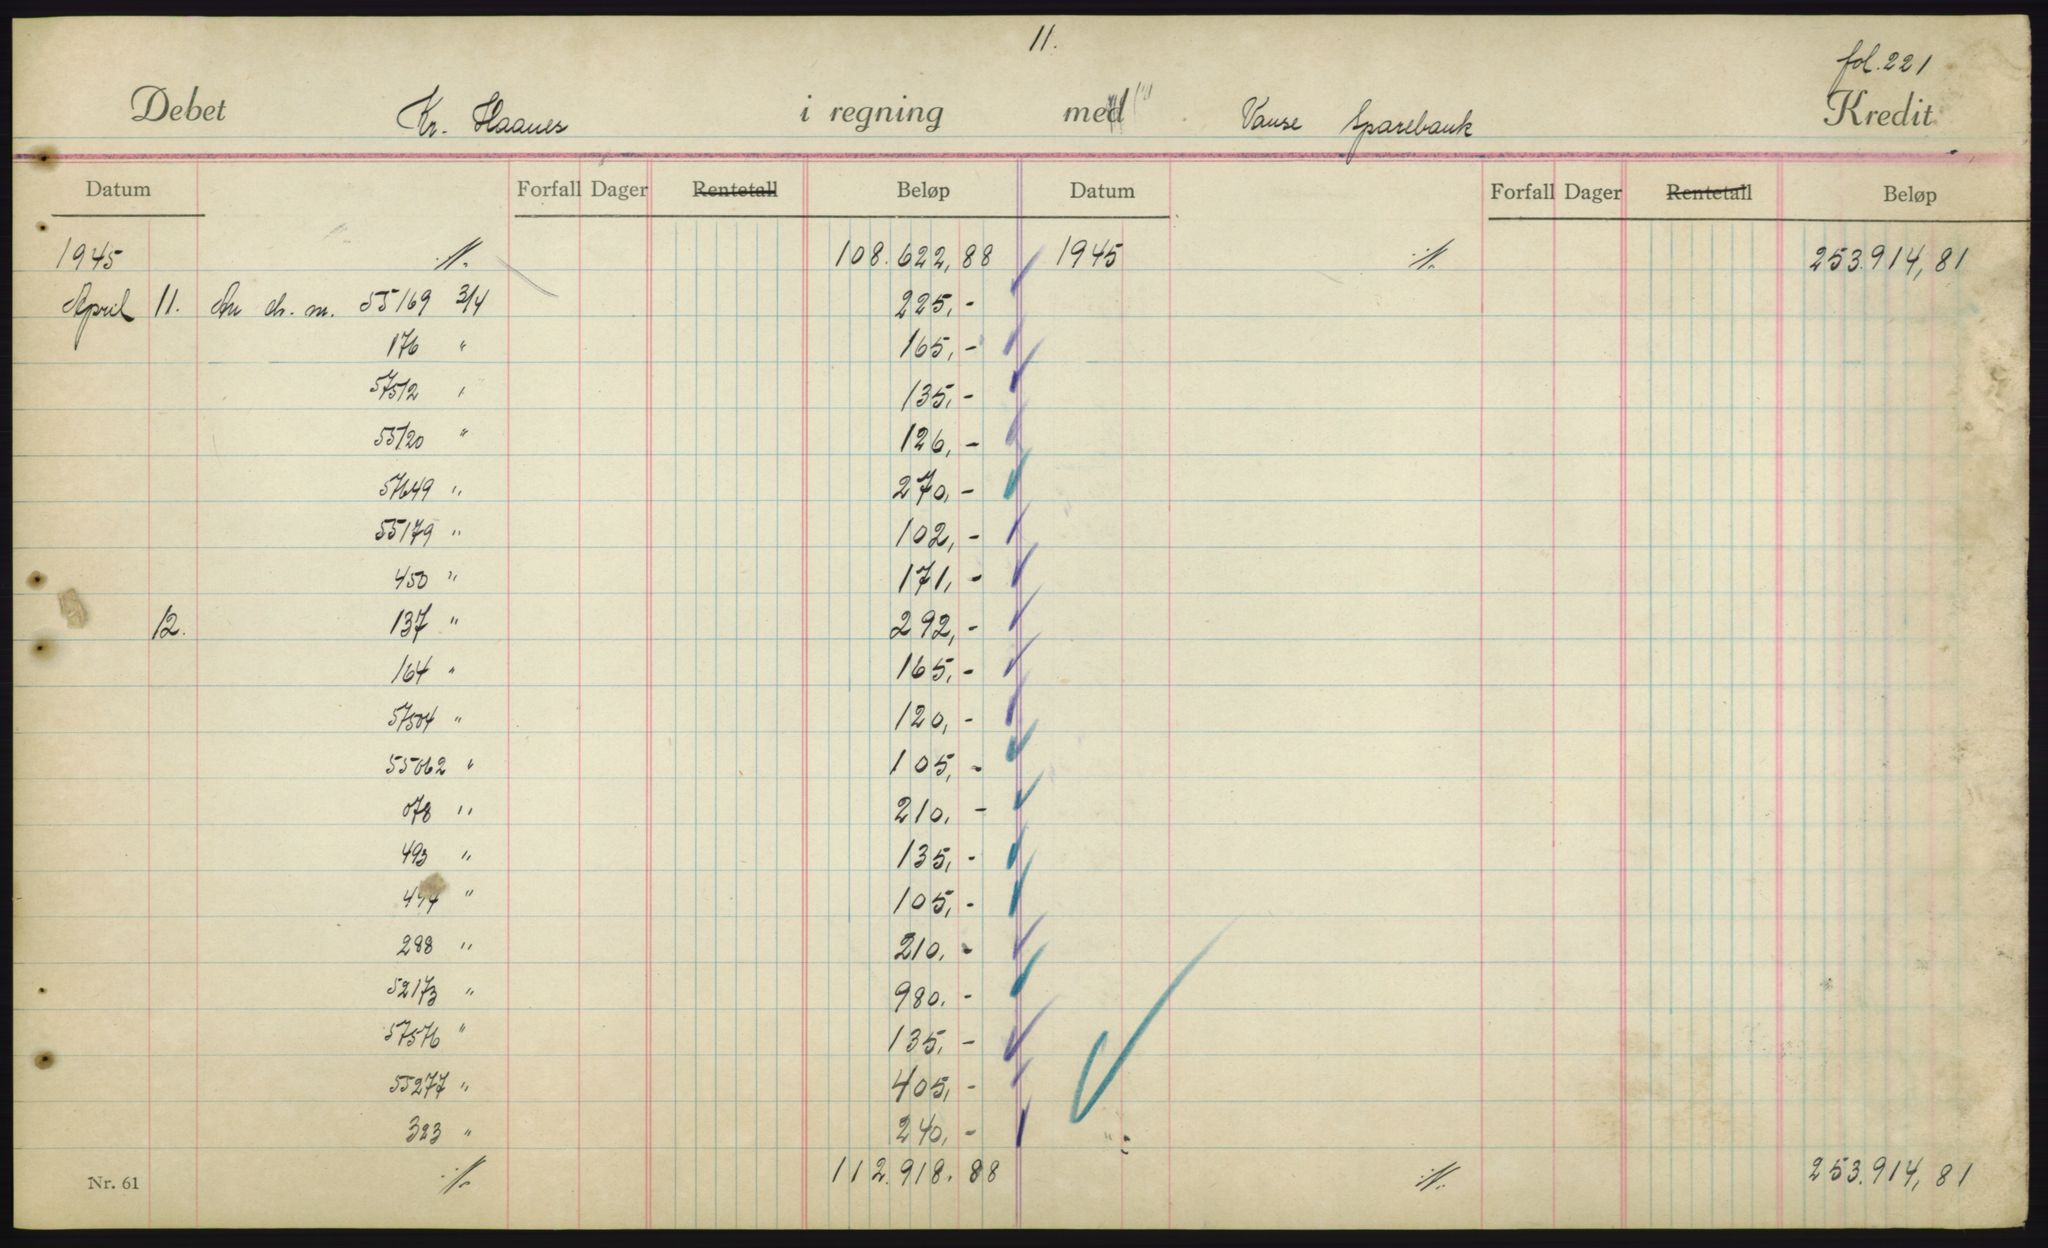 11.
fol. 221
Debet Kr. Haanes i regning med Vanse Sparebank Kredit
Datum Forfall Dager Rentetall Beløp Datum Forfall Dager Rentetall Beløp
1945 ./. 108.622,88 1945 ./. 253.914,81
April 11. An ch. nr. 55169 3/4 225,-
176 " 165,-
57512 " 135,-
55120 " 126,-
57649 " 270,-
55179 " 102,-
450 " 171,-
12. 137 " 292,-
164 " 165,-
57504 " 120,-
55062 " 105,-
078 " 210.-
493 " 135,-
" 105,-
288 " 210.-
52173 " 980.-
57576 " 135.-
55277 " 405,-
323 " 240,-
Nr. 61 ./. 112.918.88 ./. 253.914,81